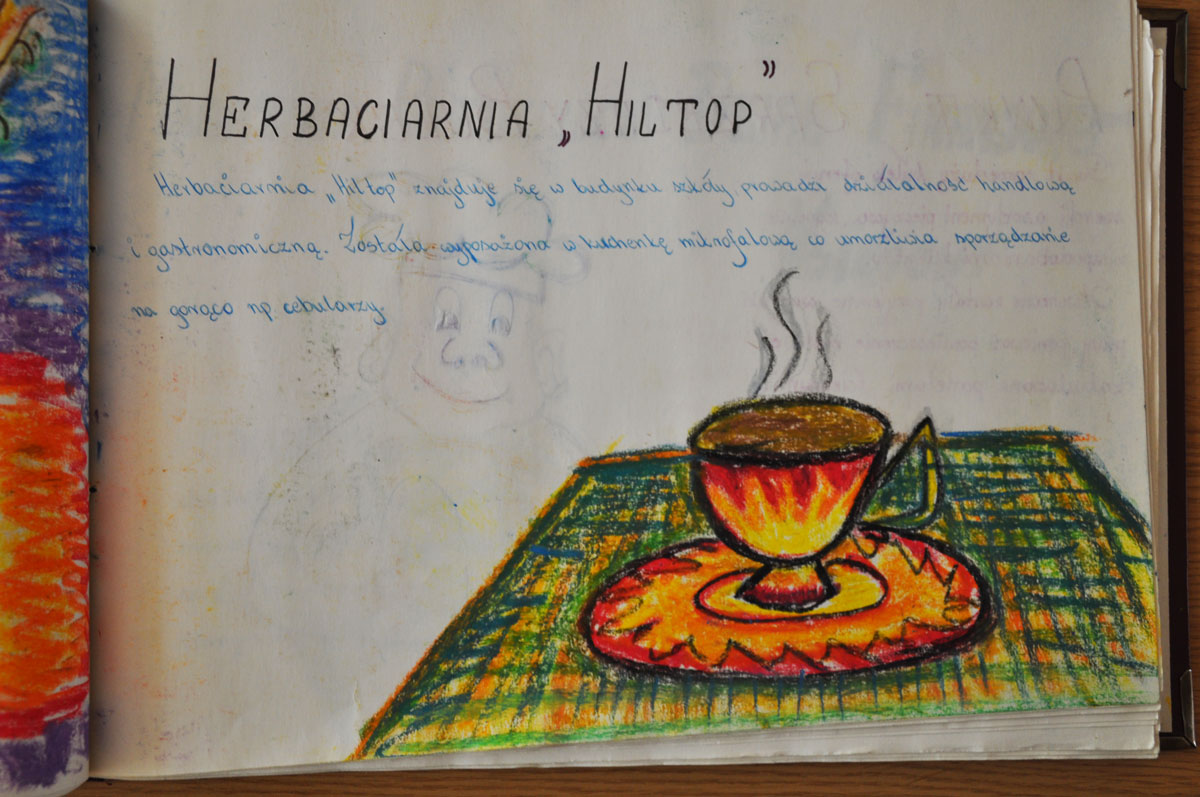 HERBACIARNIA „HILTOP”
Herbaciarnia „Hiltop” znajduję się w budynku szkóły prowadzi działalność handlową
i gastronomiczną. Została wyposażona w kuchenkę mikrofalową co umorzliwia sporządzanie
na gorąco np cebularzy